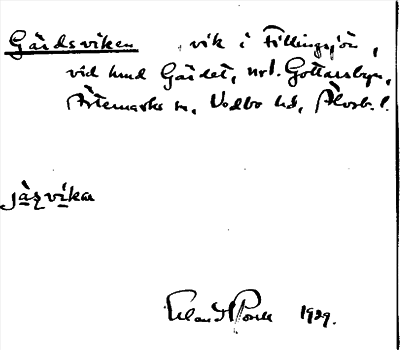 Gärdsviken, vik i Fillingsjön,
vid hmd Gärdet, nrl. Gottarsbyn,
Ärtemarks sn, Vedbo hd, Älvsb. l.
jàʒvìkan
Erland Rosell 1929.